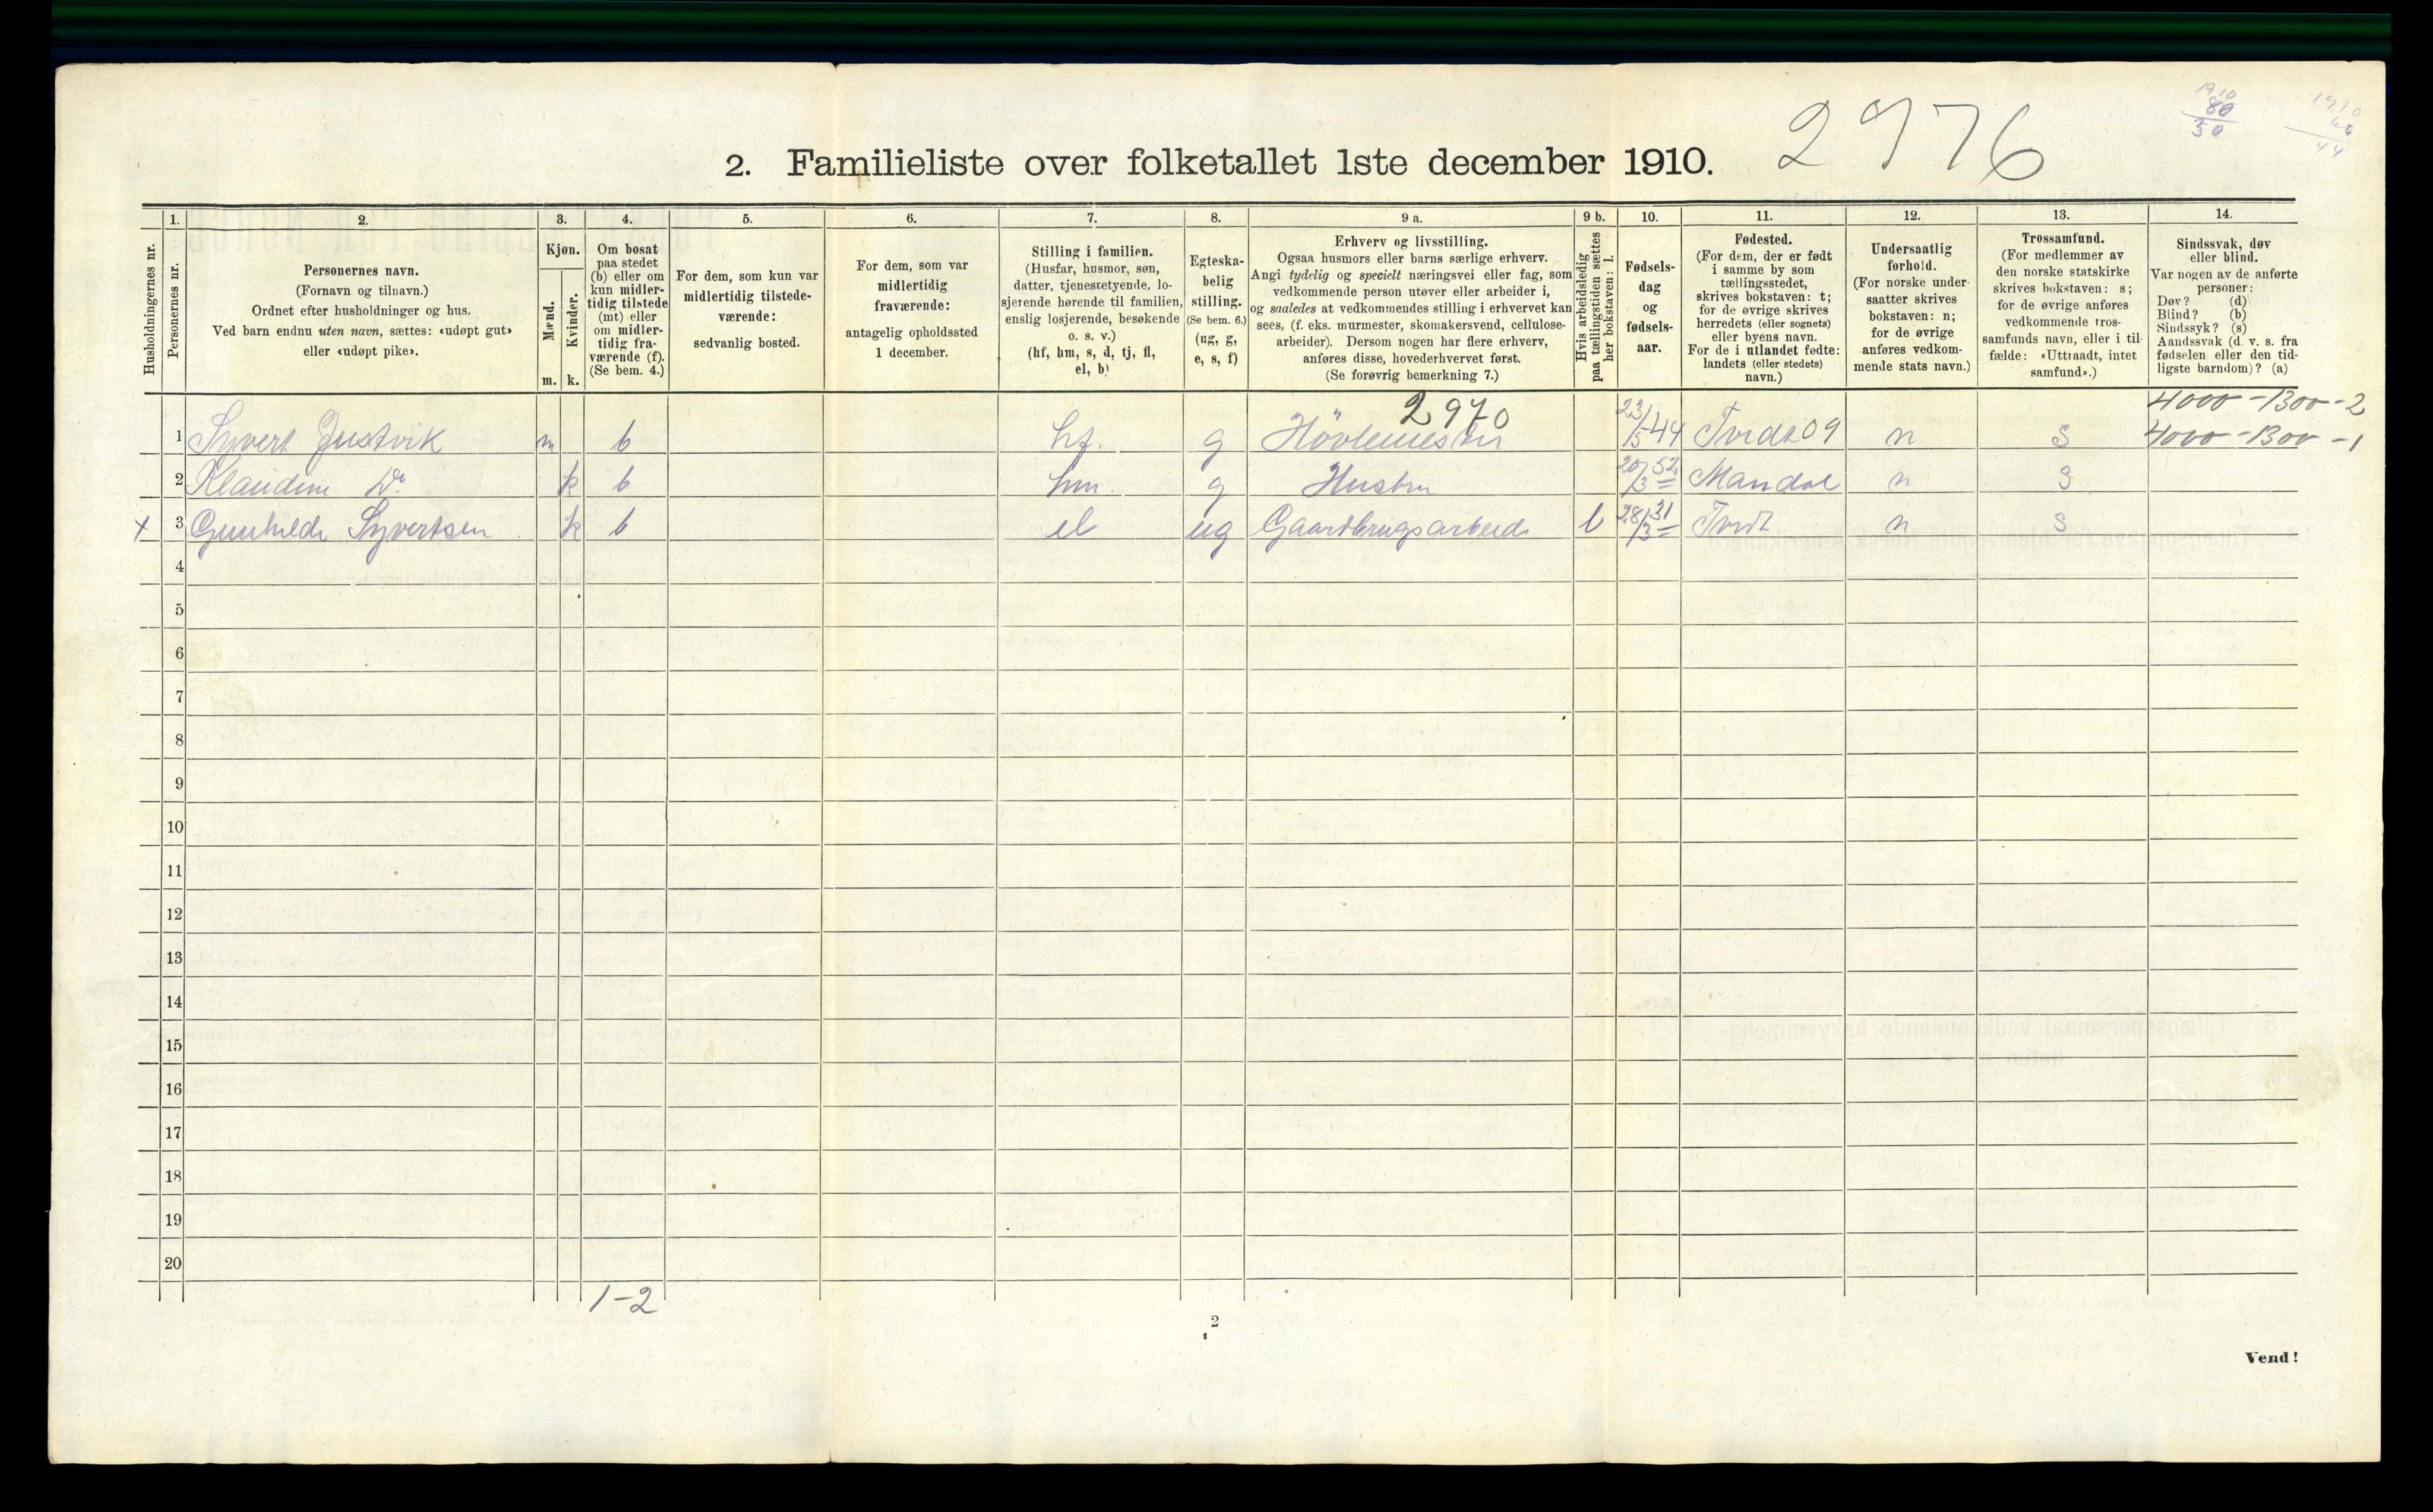 2976
1910
80
30
1910
44
2. Familieliste over folketallet 1ste december 1910.
1. 2. 3. 4. 5. 6. 7. 8. 9 a. 9 b. 10. 11. 12. 13. 14.
Husholdningernes nr.
Personernes nr.
Personernes navn.
(Fornavn og tilnavn.)
Ordnet efter husholdninger og hus.
Ved barn endnu uten navn, sættes: «udøpt gut»
eller «udøpt pike».
Kjøn.
Mænd.
Kvinder.
m. k.
Om bosat
paa stedet
(b) eller om
kun midler-
tidig tilstede
(mt) eller
om midler-
tidig fra-
værende (f).
(Se bem. 4.)
For dem, som kun var
midlertidig tilstede-
værende:
sedvanlig bosted.
For dem, som var
midlertidig
fraværende:
antagelig opholdssted
1 december.
Stilling i familien.
(Husfar, husmor, søn,
datter, tjenestetyende, lo-
sjerende hørende til familien,
enslig losjerende, besøkende
o. s. v.)
(hf, hm, s, d, tj, fl,
el, b)
Egteska-
belig
stilling.
(Se bem. 6.)
(ug, g,
e, s, f)
Erhverv og livsstilling.
Ogsaa husmors eller barns særlige erhverv.
Angi tydelig og specielt næringsvei eller fag, som
vedkommende person utøver eller arbeider i,
og saaledes at vedkommendes stilling i erhvervet kan
sees, (f. eks. murmester, skomakersvend, cellulose-
arbeider). Dersom nogen har flere erhverv,
anføres disse, hovederhvervet først.
(Se forøvrig bemerkning 7.)
Hvis arbeidsledig
paa tællingstiden sættes
her bokstaven: l.
Fødsels-
dag
og
fødsels-
aar.
Fødested.
(For dem, der er født
i samme by som
tællingsstedet,
skrives bokstaven: t;
for de øvrige skrives
herredets (eller sognets)
eller byens navn.
For de i utlandet fødte:
landets (eller stedets)
navn.)
Undersaatlig
forhold.
(For norske under-
saatter skrives
bokstaven: n;
for de øvrige
anføres vedkom-
mende stats navn.)
Trossamfund.
(For medlemmer av
den norske statskirke
skrives bokstaven: s;
for de øvrige anføres
vedkommende tros-
samfunds navn, eller i til-
fælde: «Uttraadt, intet
samfund».)
Sindssvak, døv
eller blind.
Var nogen av de anførte
personer:
Døv? (d)
Blind? (b)
Sindssyk? (s)
Aandssvak (d. v. s. fra
fødselen eller den tid-
ligste barndom)? (a)
2970
4000-1300-2
1 Syvert Justvik m b hf. g Hövlemester 23/5-44 Tvedt 09 n s 4000-1300-1
2 Klaudine Do k b hm. g Hustru 20/3 52 Mandal n s
x 3 Gunhilde Syvertsen k b el ug Gaardbrugsarbeide l 28/3 31 Tvedt n s
4
5
6
7
8
9
10
11
12
13
14
15
16
17
18
19
20
1-2
2
Vend!